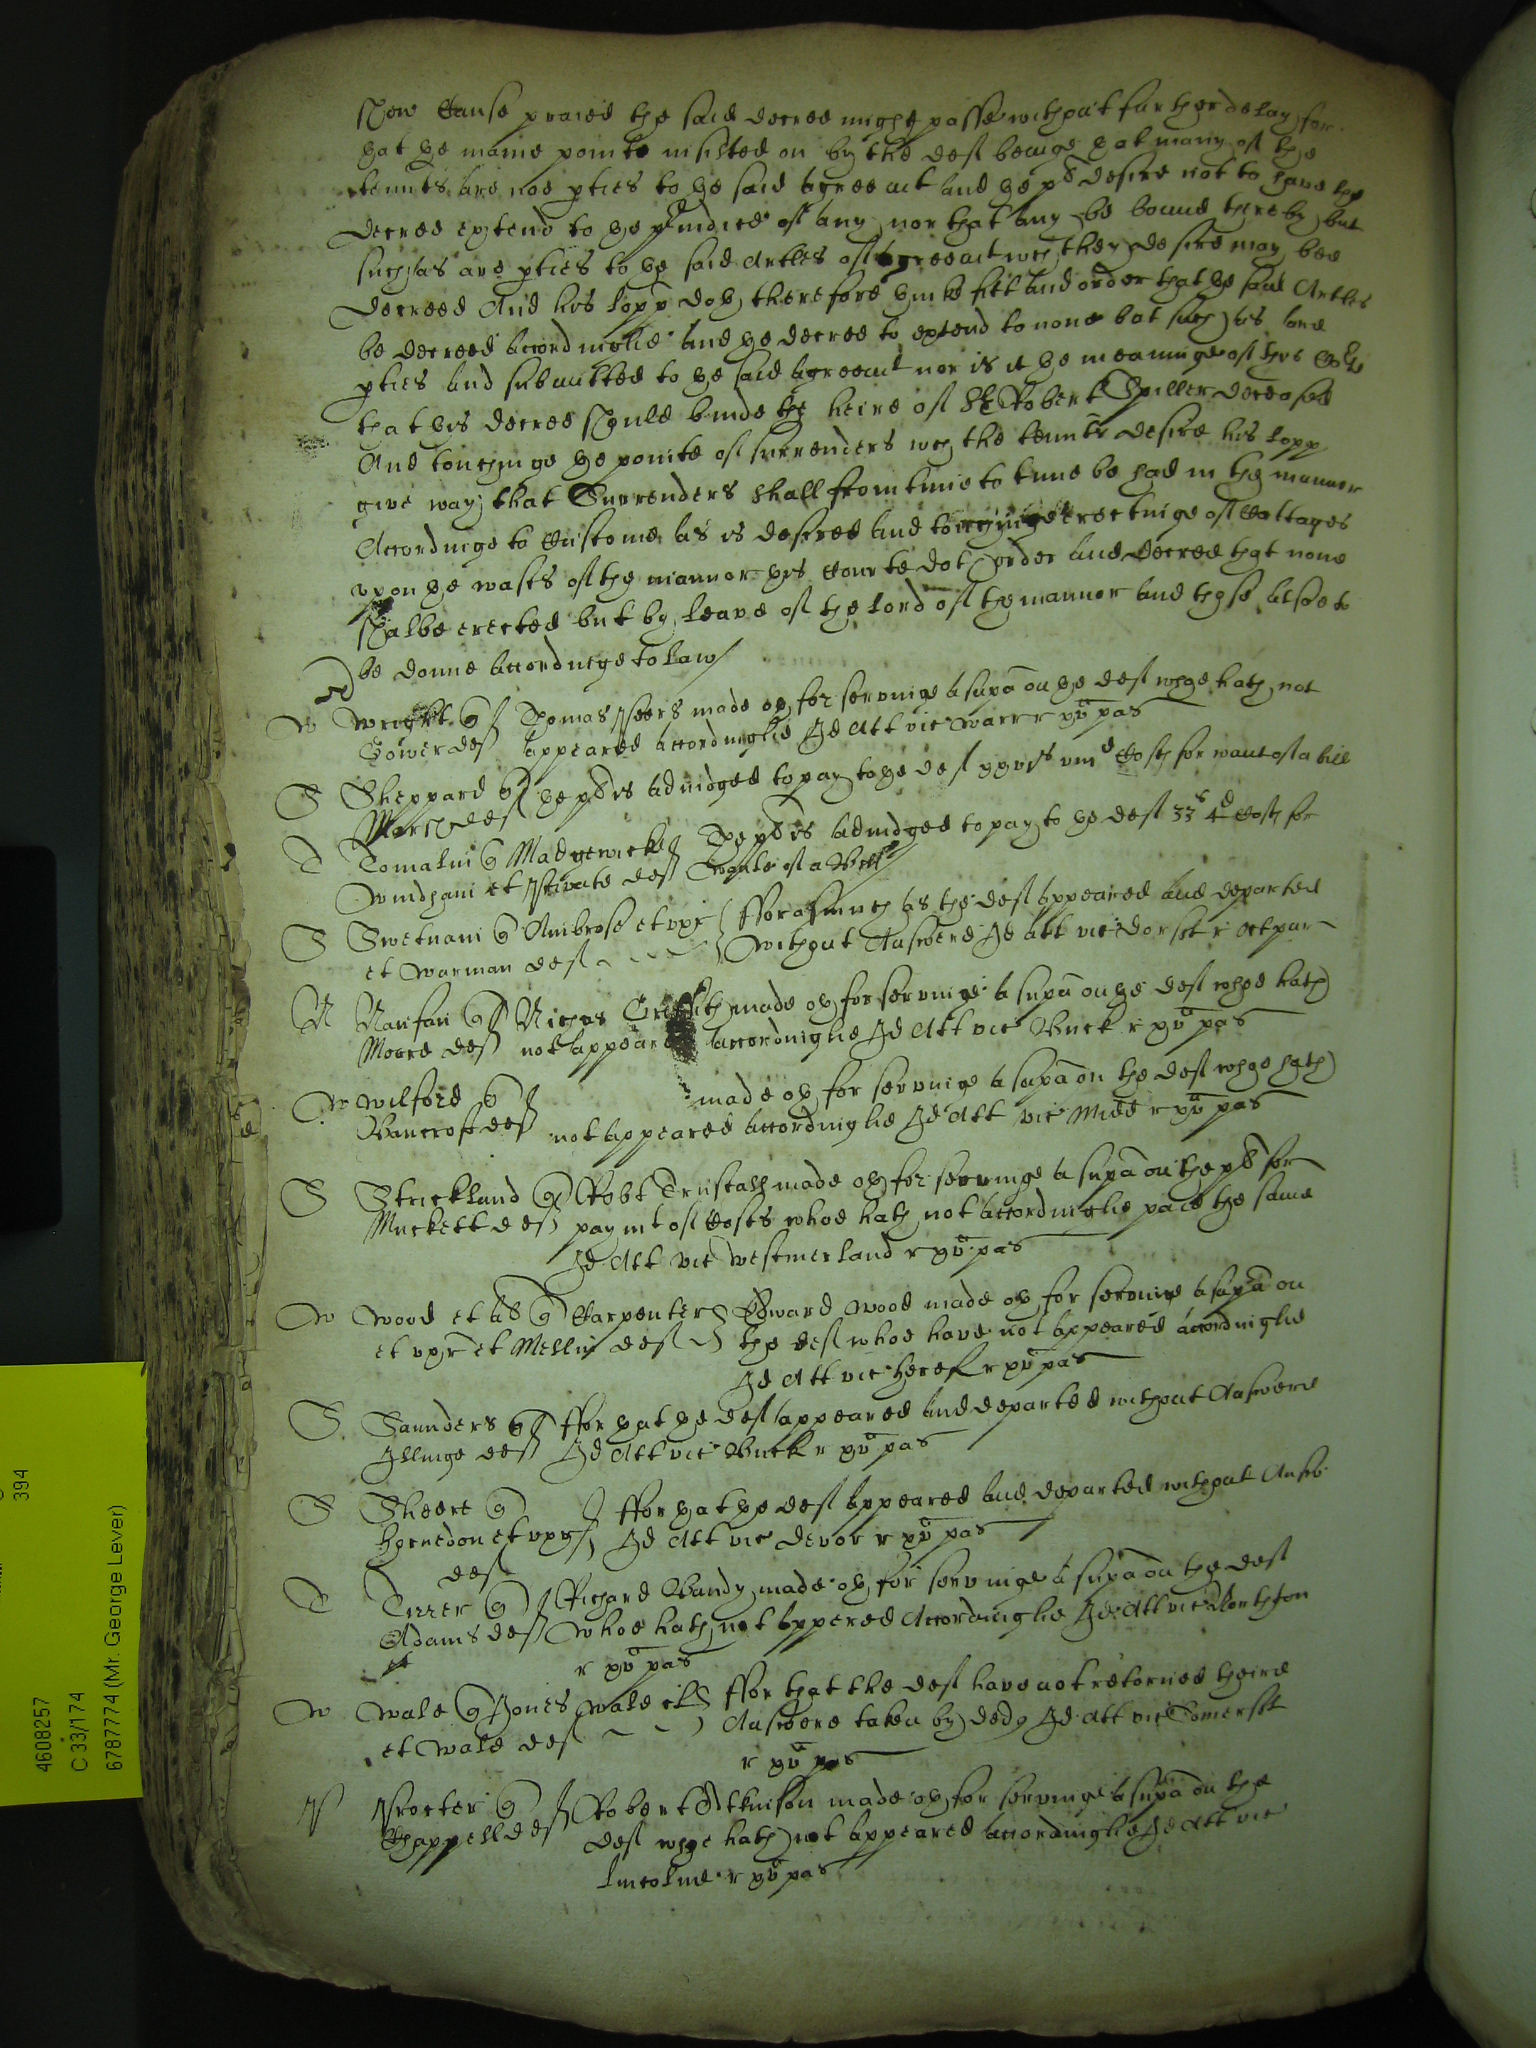 shew Cause praied the said decree might passe without further delay for
that the maine pointe insisted on by the deft beinge that many of the
tennts are noe pties to the said agreemt and the plt desire not to have the
decree extend to the preiudice of any nor that any be bound thereby but
such as are pties to the said Artles of Agreemt wch they desire may bee
decreed And his lopp doth therefore thinke fitt and order that the said Artles
be decreed accordinglie and the decree to extend to none but such as are
pties and submitted to the said agreemt nor is it the meaninge of this Cort
that this decree should binde the heire of Sr Robert Spiller deceased
And touchinge the pointe of surrenders wch the tennts desire his lopp
give way that Surrenders shall from time to time be had in the mannor
Accordinge to Custome as is desired and touchinge erectinge of Cottages
upon the wasts of the mannor this Courte doth order and decree that none
shalbe erected but by leave of the lord of the mannor and those alsoe to
be donne accordinge to law
W Wright Thomas Peers made oth for servinge a supa on the deft whoe hath not
Gower def appeared accordinglie Id Att vic Warr r xv pas
S Sheppard the plt is adiudged to pay to the def xxvjs viijd Costs for want of a bill
Marsh def
T Tomalin Madgwicke The plt is adiudged to pay to the deft 33s 4d Costs for
Windham et Private def wante of a Bill
S Swetnam Ambrose et uxr fforasmuch as the deft appeared and departed
et Warman def without Answere Id Att vic dorset r Oct pur
N Nanfan Nichas made oth for servinge a supa on the deft whoe hath
Moore def not appeared accordinglie Id Att vic Buck r xv pas
W Wilford made oth for servinge a supa on the deft whoe hath
Bancroft def not appeared accordinglie Id Att vic Midd r xv pas
S Strickland Robt Tunstall made oth for servinge a supa on the plt for
Muckett def paymt of Costs whoe hath not accordinglie paied the same
Id Att vic Westmerland r xv pas
W Wood et al Carpenter Edward Wood made oth for servinge a supa on
et uxr et Mellin def the deft whoe have not appeared accordinglie
Id Att vic heref r xv pas
S Saunders ffor that the deft appeared and departed without Answere
Illinge def Id Att vic Buck r xv pas
S Sheere ffor that the deft appeared and departed without Answ
hernedon et uxr Id Att vic devon r xv pas
def
T Tirrer Richard Bandy made oth for servinge a supa on the deft
Adams def whoe hath not appered Accordinglie Id Att vic Northton
r xv pas
W Wale Jones Wale ffor that the deft have not retorned theire
et Wale def Answere taken by ded Id Att vic Somerset
r xv pas
P Procter Robert Atkinson made oth for servinge a supa on the
Chappell def deft whoe hath not appeared accordinglie Id Att vic
lincolne r xv pas
394
4608257
C 33/174
6787774 (Mr. George Lever)